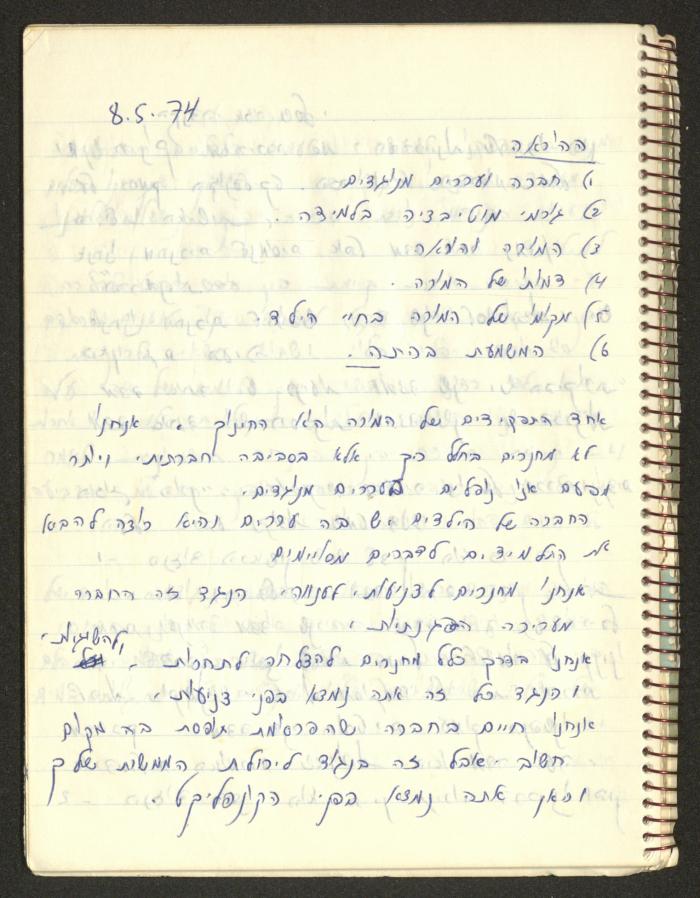 8.5.74
ההוראה
1) חברה וערכים מנוגדים
2) גורמי מוטיבציה בלמידה.
3) המורה והוראה
4) דמותו של המורה.
5) מקומו של המורה בחיי הילד.
6) המשמעת בכיתה.
אחד התפקידים של המורה הוא החינוך - אנחנו
לא מחנכים בחלל ריק אלא בסביבה חברתית ויותר
מפעם אנו נופלים בערכים מנוגדים.
החברה של הילדים יש בה ערכים והיא רוצה להביא
את התלמידים לדברים מסויימים
אנחנו מחנכים לצניעות, לענווה, כנגד זה החברה
מעריכה הפגנתיות.
אנחנו בדרך כלל מחנכים להצלחה לתחרות. ולהשגיות.
וכנגד כל זה אתה נמצא בפני צניעות.
אנחנו חיים בחברה שהפרסומת תופסת בה מקום
חשוב אבל זה בנגוד ליכולות הממשיות שלך
וכאן אתה נמצא בפני הקונפליקט.